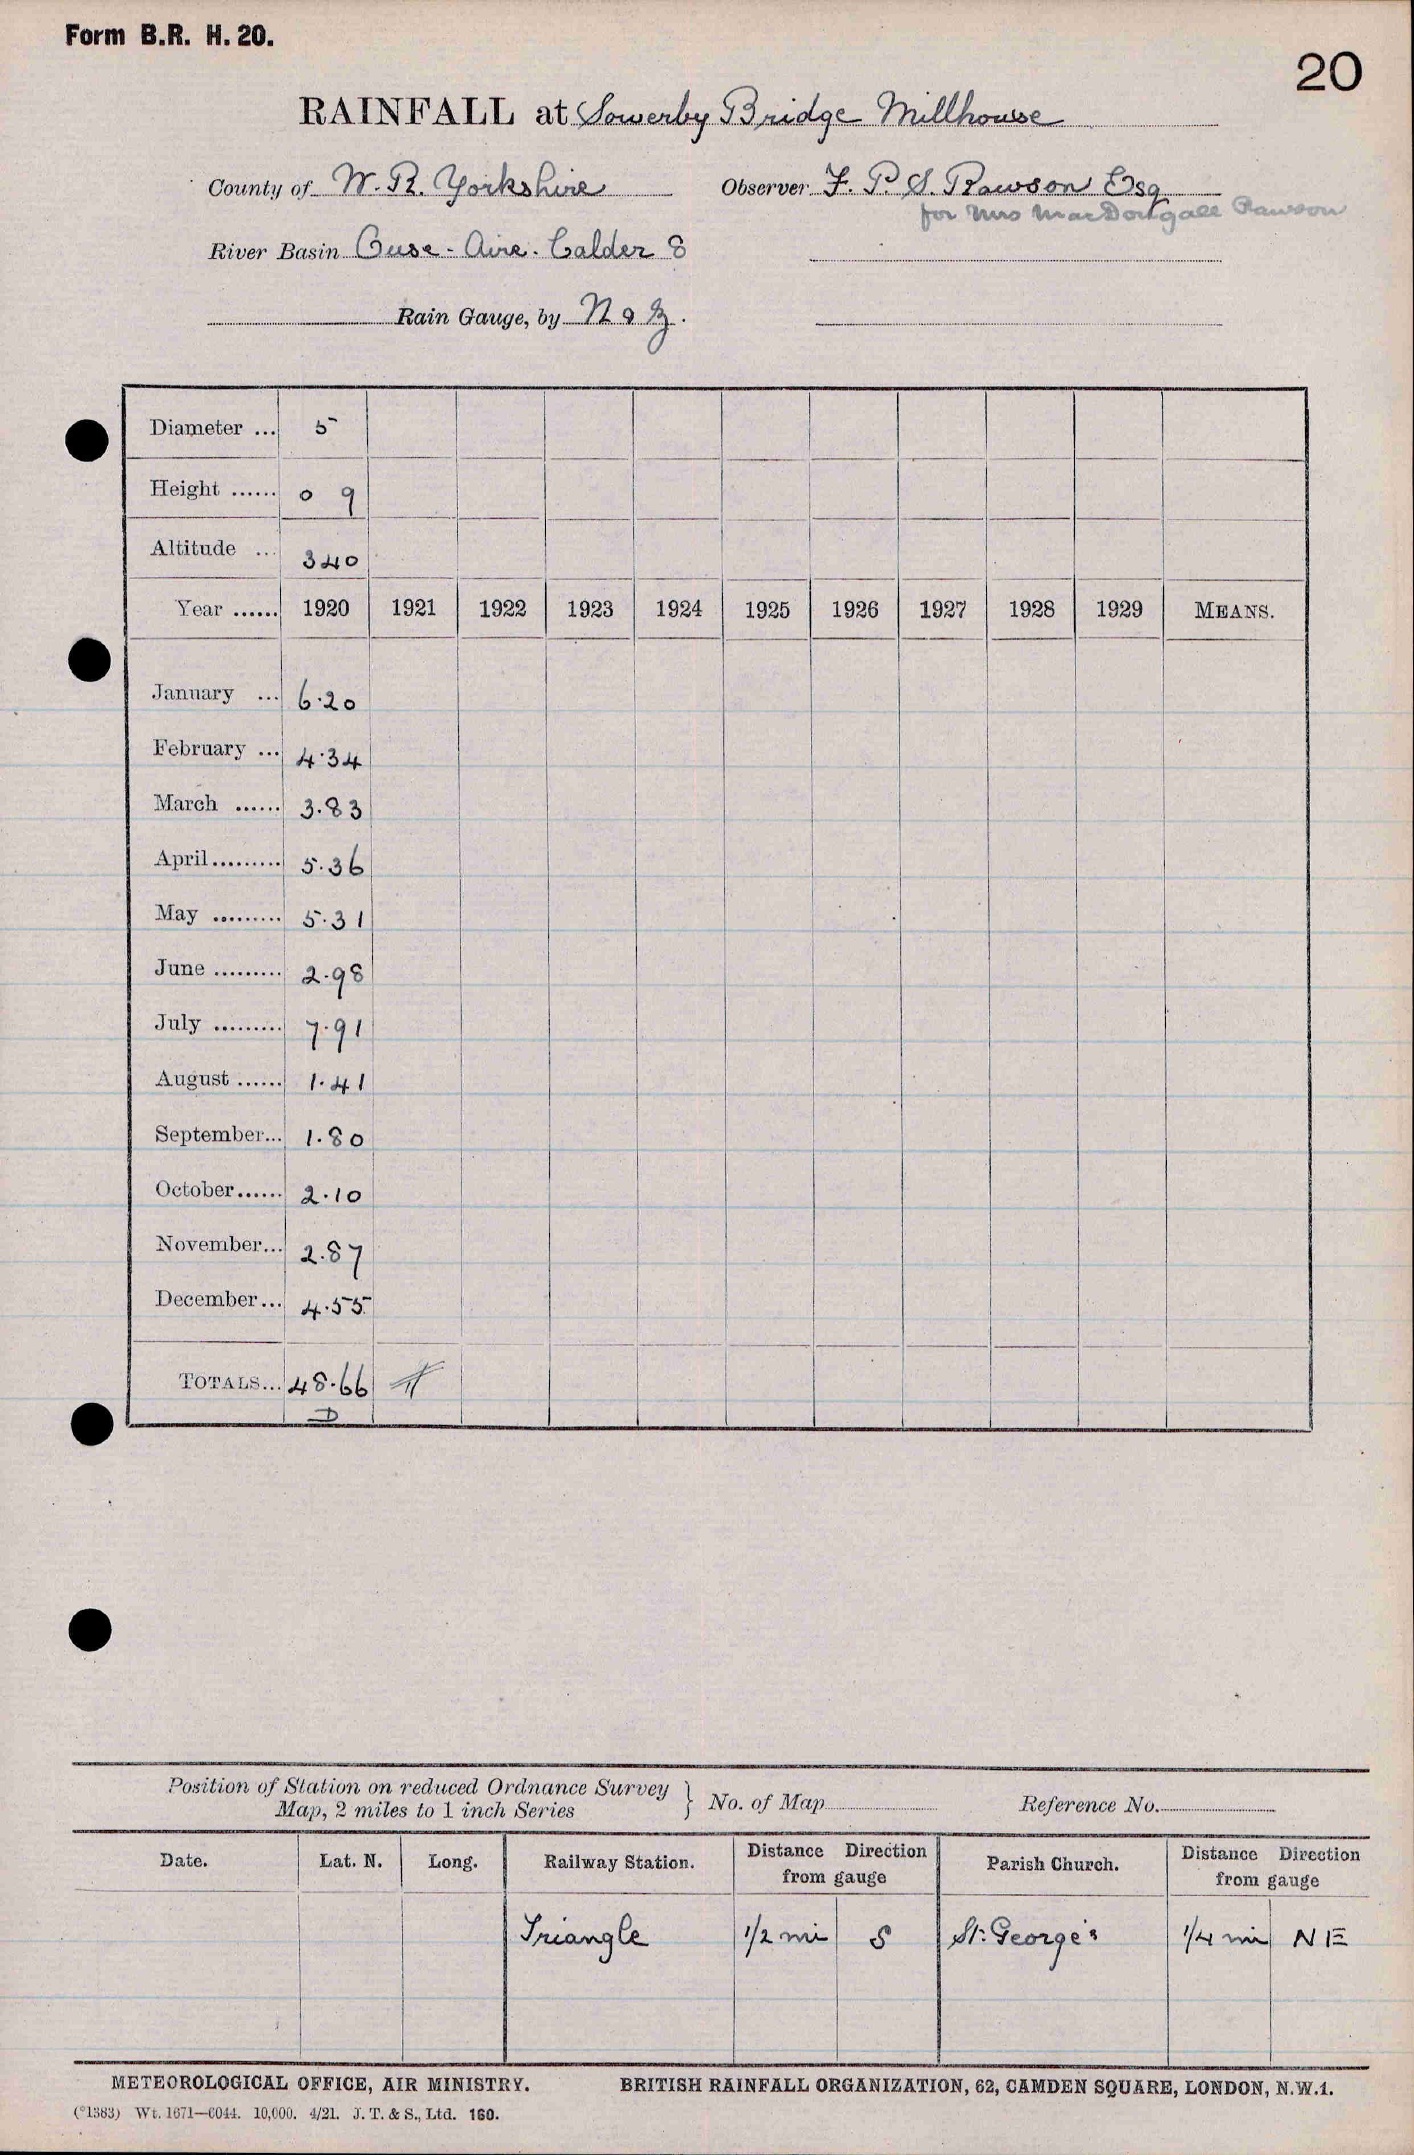 Form B.R. H. 20.
20
RAINFALL at Sowerby Bridge Millhouse
County of W. R. Yorkshire Observer F. P. S. Rawson Esq
for Mrs MacDougall Rawson
River Basin Ouse - Aire - Calder 8
Rain Gauge, by N & Z.
Diameter ... 5
Height ...... 0 9
Altitude ... 340
Year ...... 1920 1921 1922 1923 1924 1925 1926 1927 1928 1929 MEANS.
January ... 6.20
February ... 4.34
March ...... 3.83
April......... 5.36
May ......... 5.31
June ......... 2.98
July ......... 7.91
August ...... 1.41
September... 1.80
October...... 2.10
November... 2.87
December... 4.55
TOTALS... 48.66
D
Position of Station on reduced Ordnance Survey
Map, 2 miles to 1 inch Series } No. of Map Reference No.
Date. Lat. N. Long. Railway Station. Distance Direction from gauge Parish Church. Distance Direction from gauge
Triangle 1/2 mi S St. George's 1/4 mi NE
METEOROLOGICAL OFFICE, AIR MINISTRY. BRITISH RAINFALL ORGANIZATION, 62, CAMDEN SQUARE, LONDON, N.W.1.
(*1383) Wt. 1671—6044. 10,000. 4/21. J. T. & S., Ltd. 160.